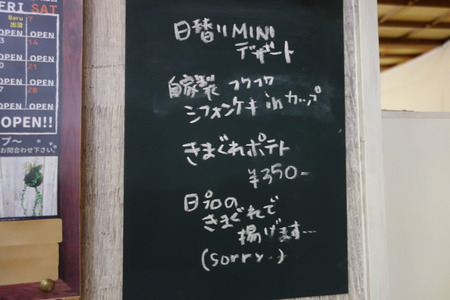 ERI SAT
Baru 7
出没
OPEN OPEN
14
OPEN OPEN
21
OPEN OPEN
28
OPEN OPEN
OPEN!!
プ〜
お問合わせ下さい。
日替りMINI
デザート
自家製 フワフワ
シフォンケーキ in カップ
きまぐれポテト
¥350-
日ごろの
きまぐれで
揚げます…
(sorry.)